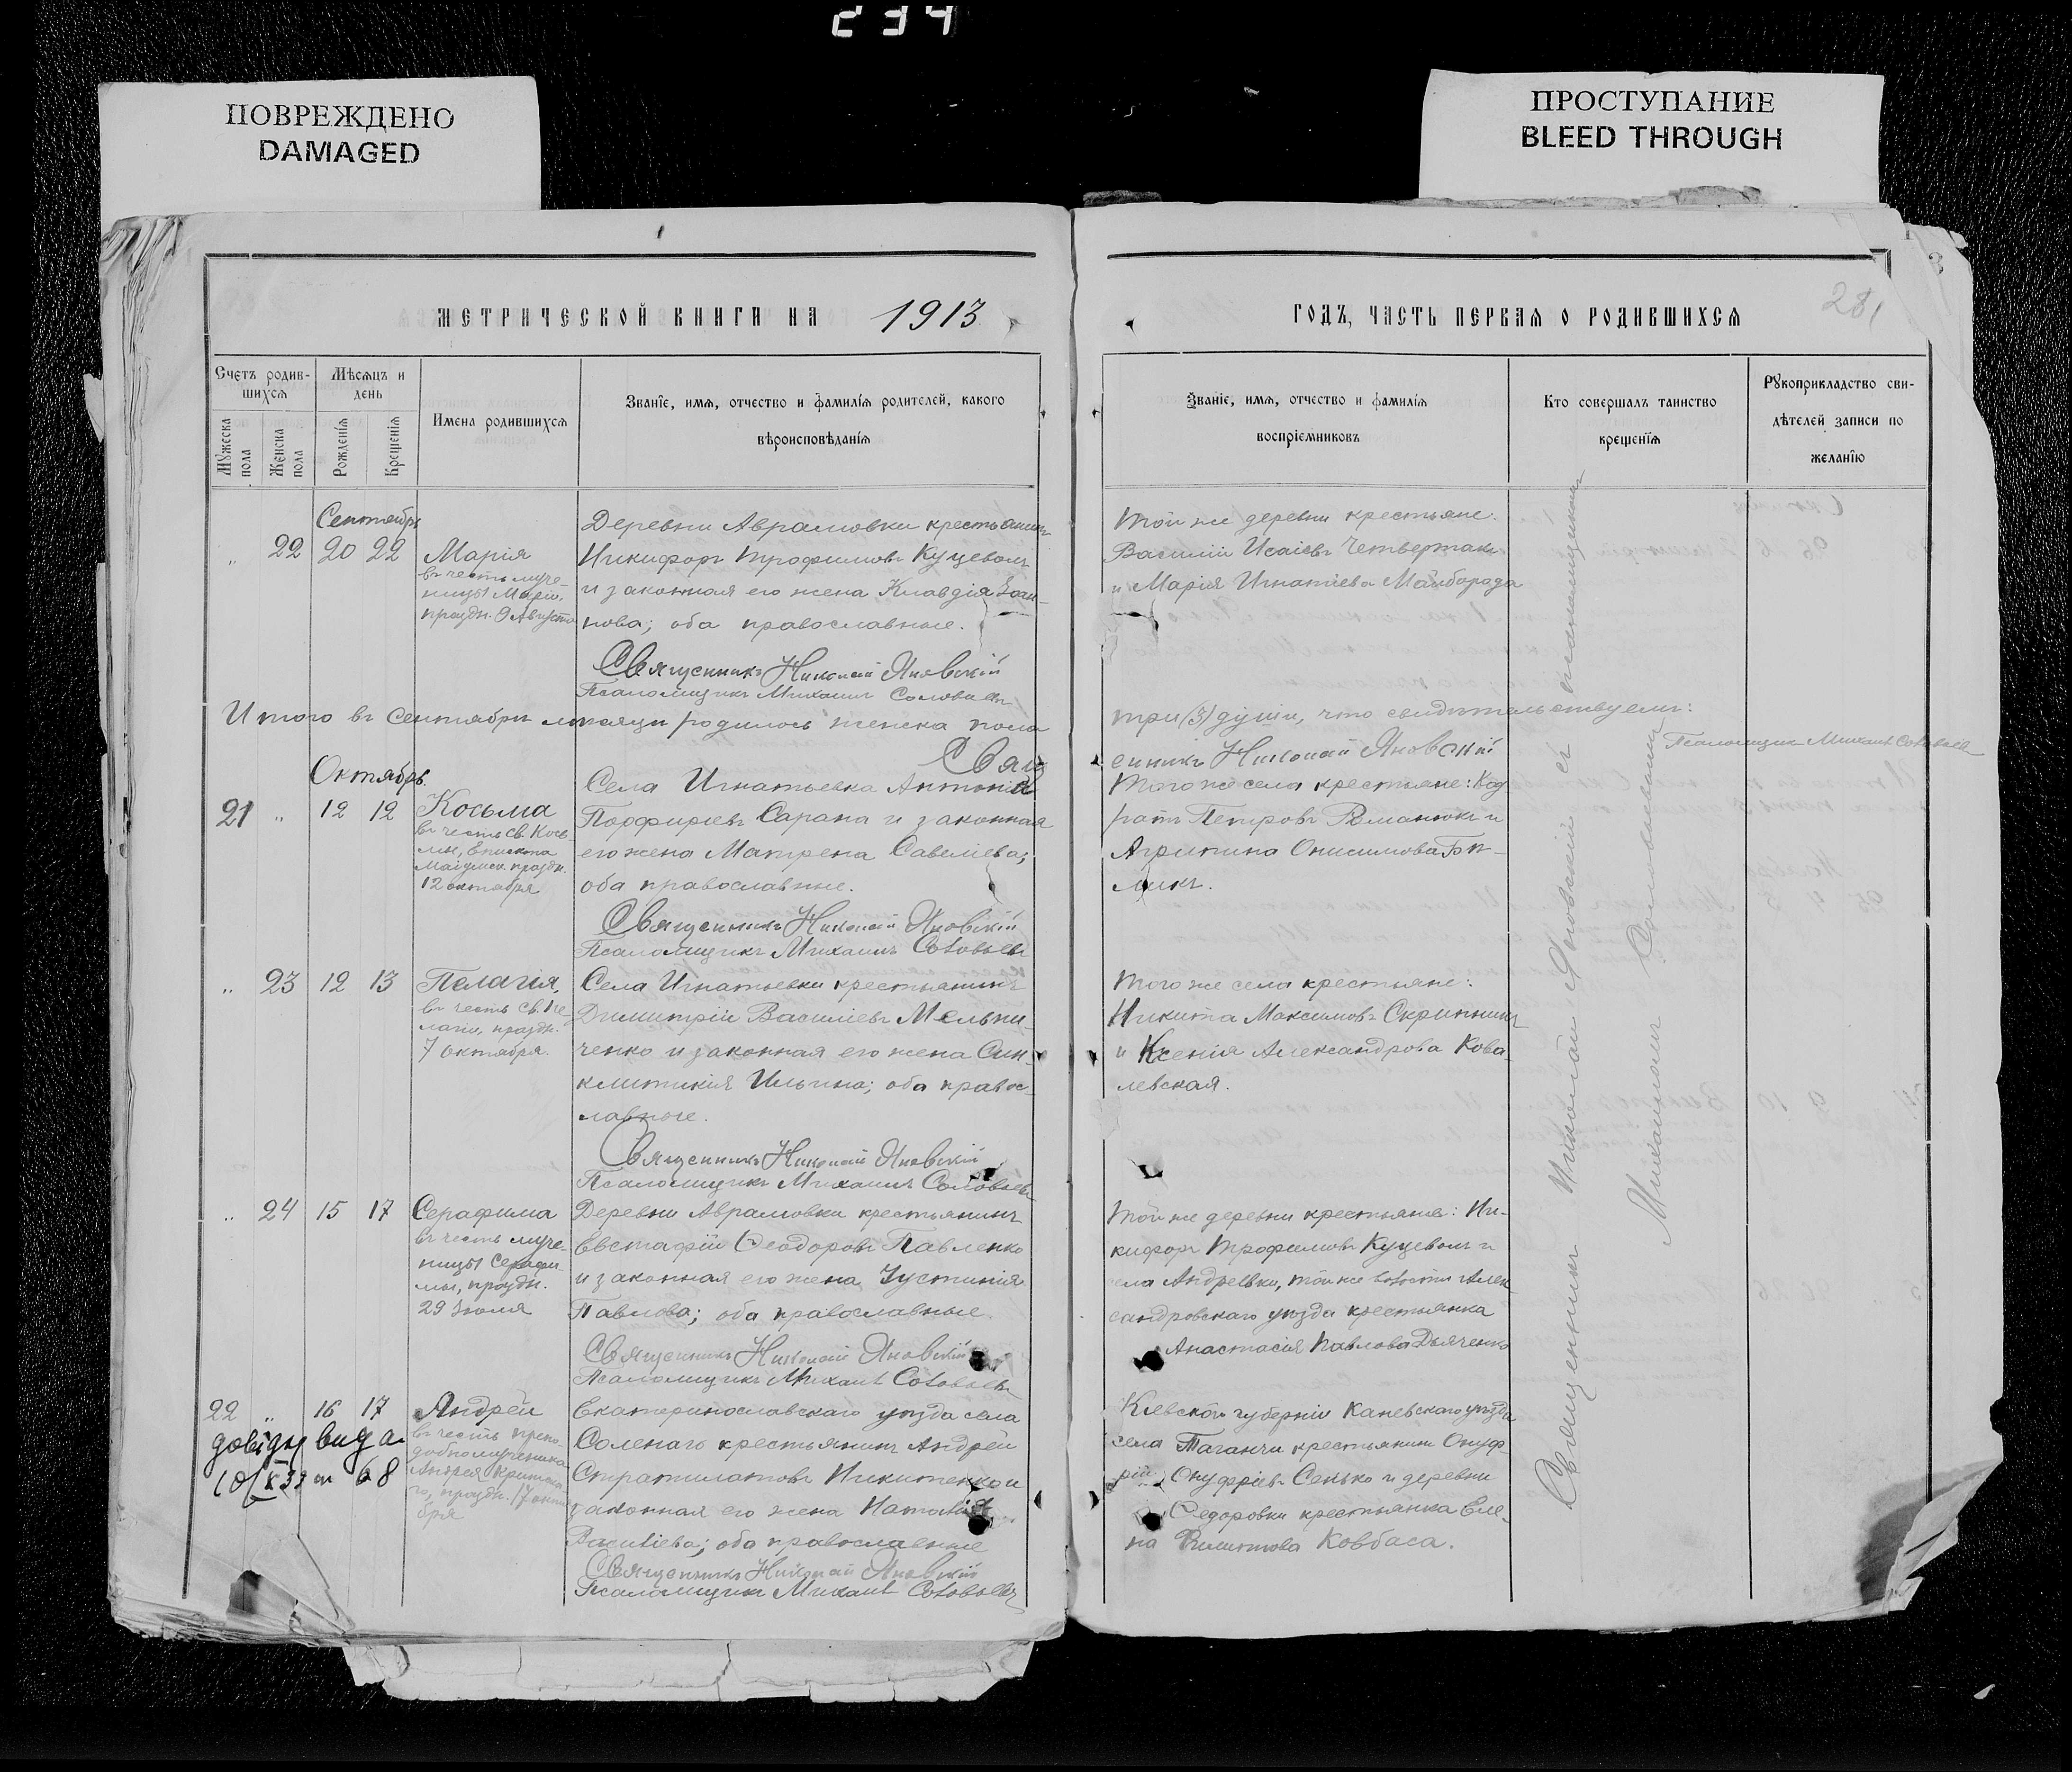 234
ПОВРЕЖДЕНО
DAMAGED
ПРОСТУПАНИЕ
BLEED THROUGH
МЕТРИЧЕСКОЙ КНИГИ НА 1913
Счетъ родив-
шихся
Мѣсяцъ и
день
Мужеска пола
Женска пола
Рожденія
Крещенія
Имена родившихся
Званіе, имя, отчество и фамилія родителей, какого
вѣроисповѣданія
Сентябрь
22 20 22 Марія
въ честь муче-
ницы Маріи,
праздн. 9 Августа
Деревни Аврамовки крестьянинъ
Никифоръ Трофимовъ Куцеволъ
и законная его жена Клавдія Іоан-
нова; оба православные.
Священникъ Николай Яновскій
Псаломщикъ Михаилъ Соловьевъ
Итого въ Сентябрѣ мѣсяцѣ родилось женска пола
Свящ
Октябрь.
21 " 12 12 Косьма
въ честь св. Кось-
мы, Епископа
Маіумск. праздн.
12 октября
Села Игнатьевка Антоній
Порфиріевъ Сарана и законная
его жена Матрена Савеліева;
оба православные.
Священникъ Николай Яновскій
Псаломщикъ Михаилъ Соловьевъ
" 23 12 13 Пелагія,
въ честь св. Пе-
лагіи, праздн.
7 октября.
Села Игнатьевки крестьянинъ
Димитрій Василіевъ Мельни-
ченко и законная его жена Син-
клитикія Ильина; оба правос-
лавные.
Священникъ Николай Яновскій
Псаломщикъ Михаилъ Соловьевъ
" 24 15 17 Серафима
въ честь муче-
ницы Серафи-
мы, праздн.
29 Іюля
Деревни Аврамовки крестьянинъ
Евстафій Ѳеодоровъ Павленко
и законная его жена Іустинія
Павлова; оба православные.
Священникъ Николай Яновскій
Псаломщикъ Михаилъ Соловьевъ
22 " 16 17 Андрей
въ честь препо-
добномученика
Андрея Критска-
го, праздн. 17 октя-
бря
довідку видан
68
Екатеринославскаго уѣзда села
Соленаго крестьянинъ Андрей
Стратилатовъ Никитенко и
законная его жена Наталія
Василіева; оба православные
Священникъ Николай Яновскій
Псаломщикъ Михаилъ Соловьевъ
281
ГОДЪ, ЧАСТЬ ПЕРВАЯ О РОДИВШИХСЯ
Званіе, имя, отчество и фамилія
воспріемниковъ
Кто совершалъ таинство
крещенія
Рукоприкладство сви-
дѣтелей записи по
желанію
Той же деревни крестьяне:
Василій Исаіевъ Четвертакъ
и Марія Игнатіева Майборода
три (3) души, что свидѣтельствуемъ:
енникъ Николай Яновскій
Псаломщикъ Михаилъ Соловьевъ
Того же села крестьяне: Код-
ратъ Петровъ Романюкъ и
Агрипина Онисимова Бѣ-
ликъ.
Того же села крестьяне:
Никита Максимовъ Скрипникъ
и Ксенія Александрова Кова-
левская.
Той же деревни крестьяне: Ни-
кифоръ Трофимовъ Куцеволъ и
села Андреевки, той же волости Алек-
сандровскаго уѣзда крестьянка
Анастасія Павлова Дьяченко
Кіевской губерніи Каневскаго уѣзда
села Таганчи крестьянинъ Онуф-
рій Онуфріевъ Сенько и деревни
Ѳедоровки крестьянка Еле-
на Филиппова Ковбаса.
Священникъ Николай Яновскій съ псаломщикомъ
Михаиломъ Соловьевымъ